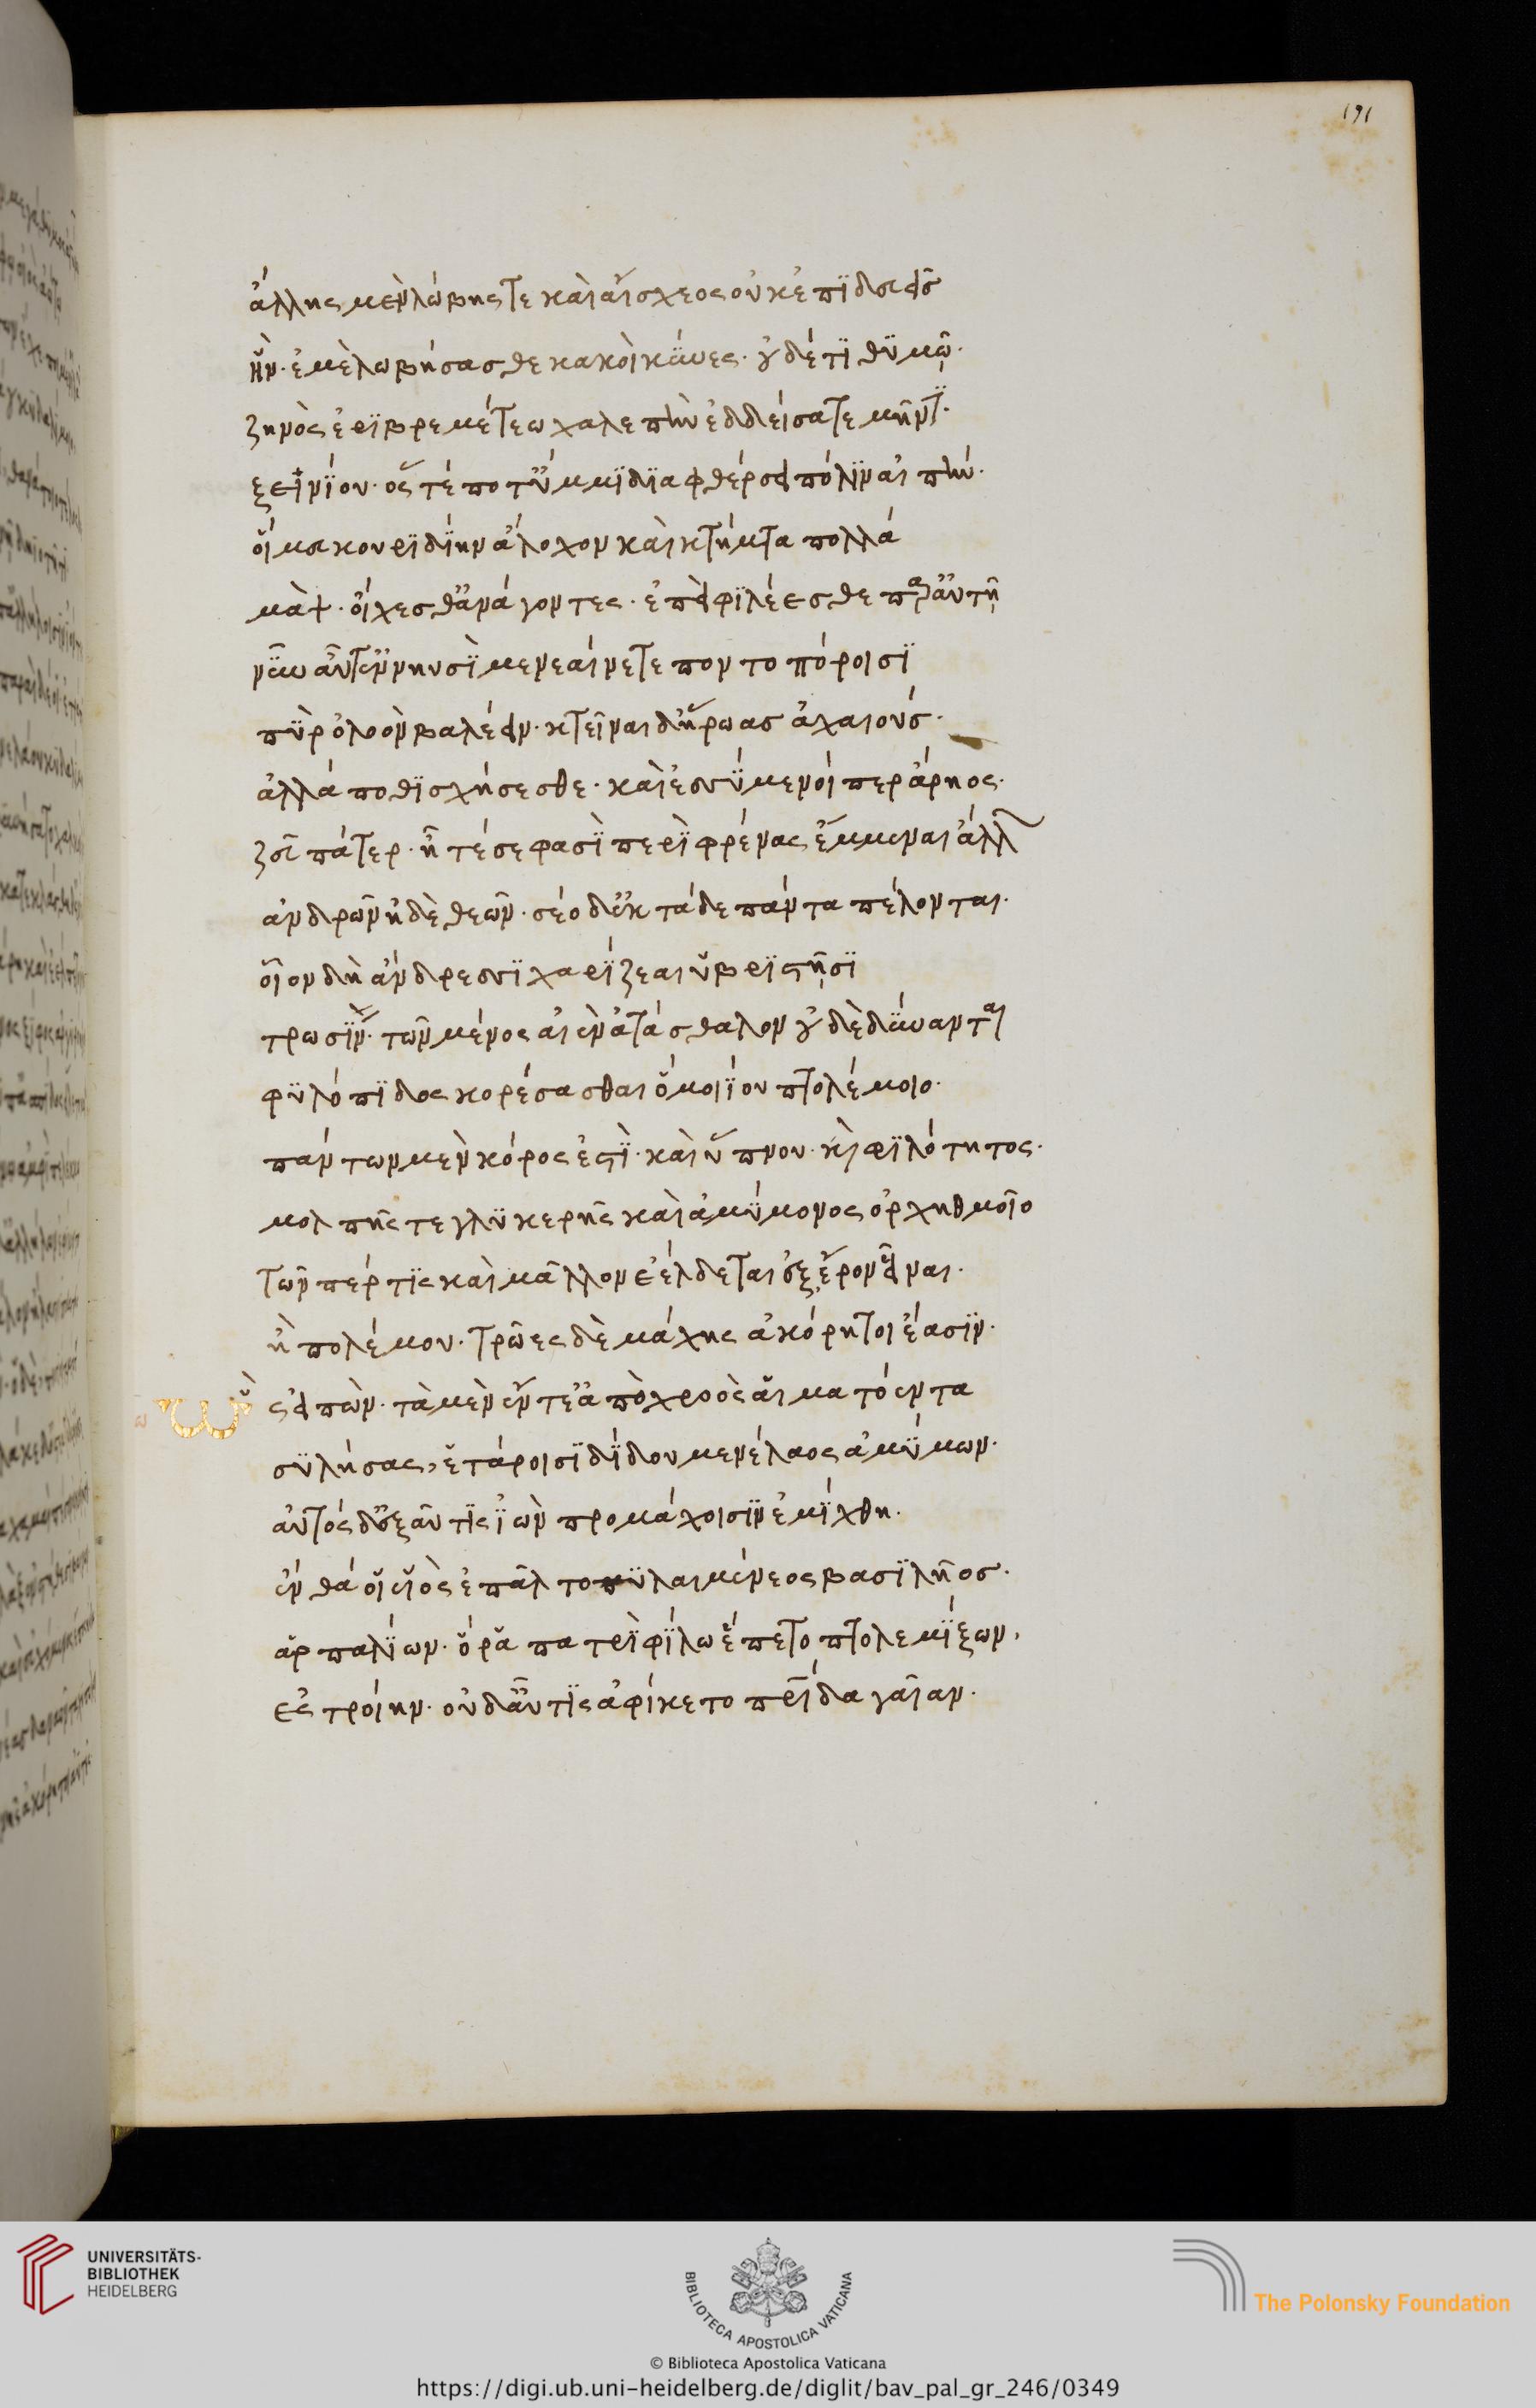 191
ἄλλης μὲν λώβης τε καὶ αἴσχεος οὐκ ἐπϊδευεῖς
ἣν ἐμὲ λωβήσασθε κακοὶ κΰνες· οὐδέ τϊ θϋμῷ·
ζηνὸς ἐρϊβρεμέτεω χαλεπὴν ἐδδείσατε μῆνϊν·
ξεινΐου· ὅς τέ ποτ' ὔμμϊ δϊαφθέρσει πόλϊν αἰπήν·
οἵ μευ κουρϊδΐην ἄλοχον καὶ κτήματα πολλά
μὰψ οἴχεσθ' ἀνάγοντες· ἐπεὶ φϊλέεσθε παρ' αὐτῇ
νῦν αὖτ' ἐν νηυσὶ μενεαίνετε ποντοπόροισϊ
πῦρ ὀλοὸν βαλέειν· κτεῖναι δ' ἥρωας ἀχαιούς·
ἀλλά ποθϊ σχήσεσθε· καὶ ἐσσΰμενοί περ ἄρηος·
ζεῦ πάτερ· ἦ τέ σε φασὶ περὶ φρένας ἔμμεναι ἄλλων
ἀνδρῶν ἠδὲ θεῶν· σέο δ' ἐκ τάδε πάντα πέλονται·
οἷον δὴ ἄνδρεσσϊ χαρΐζεαι ὑβρϊστῇσϊ
τρωσὶν· τῶν μένος αἰὲν ἀτάσθαλον οὐδὲ δΰνανται
φϋλόπϊδος κορέσασθαι ὁμοιΐου πτολέμοιο·
πάντων μὲν κόρος ἐστὶ· καὶ ὕπνου· καὶ φϊλότητος·
μολπῆς τε γλϋκερῆς καὶ ἀμΰμονος ὀρχηθμοῖο
τῶν πέρ τϊς καὶ μᾶλλον ἐέλδεται ἐξ ἔρον εἷναι·
ἢ πολέμου· τρῶες δὲ μάχης ἀκόρητοι ἔασϊν·
ὣς εἰπὼν· τὰ μὲν ἔντε' ἀπὸ χροὸς αἱματόεντα
σϋλήσας, ἑτάροισϊ δΐδου μενέλαος ἀμΰμων·
αὐτὸς δ' ἐξ αὖτϊς ἰὼν προμάχοισϊν ἐμΐχθη·
ἔνθά οἱ υἱὸς ἐπᾶλτο πϋλαιμένεος βασϊλῆος·
ἁρπαλΐων· ὅ ῥα πατρὶ φΐλω ἕπετο πτολεμΐξων,
ἐς τροίην· οὐδ' αὖτϊς ἀφίκετο πατρίδα γαῖαν·
UNIVERSITÄTS-
BIBLIOTHEK
HEIDELBERG
BIBLIOTECA APOSTOLICA VATICANA
© Biblioteca Apostolica Vaticana
The Polonsky Foundation
https://digi.ub.uni-heidelberg.de/diglit/bav_pal_gr_246/0349